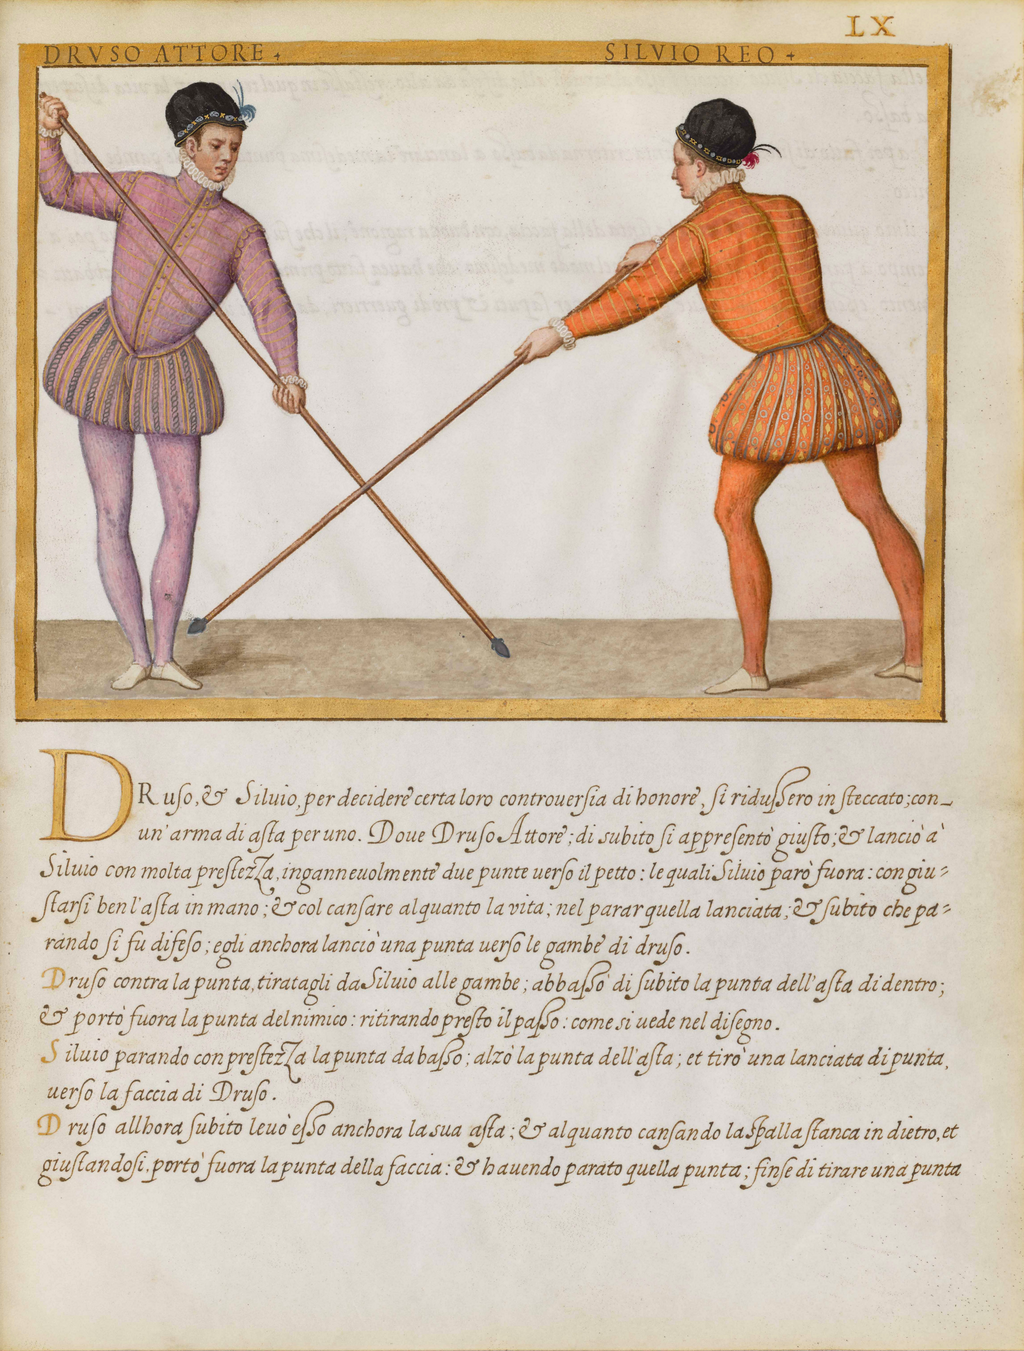 LX
DRVSO ATTORE +
SILVIO REO +
DRuſo, & Siluio, per decidere certa loro controuerſia di honore, ſi riduſſero in ſteccato; con_
un' arma di aſta per uno. Doue Druſo Attore; di subito ſi appreſentò giuſto; & lanciò à
Siluio con molta preſtezza, ingannevolmente due punte uerſo il petto: le quali Siluio parò fuora: con giu⸗
ſtarſi ben l'aſta in mano; & col canſare alquanto la vita; nel parar quella lanciata; & ſubito che pa⸗
rando ſi fu difeſo; egli anchora lanciò una punta uerſo le gambe di druſo.
Druſo contra la punta, tiratagli da Siluio alle gambe; abbaſſò di ſubito la punta dell'aſta di dentro;
& portò fuora la punta del nimico: ritirando preſto il paſſo: come si uede nel diſegno.
Siluio parando con preſtezza la punta da baſſo; alzò la punta dell'aſta; et tirò una lanciata di punta,
uerſo la faccia di Druſo.
Druſo allhora ſubito leuò eſſo anchora la sua aſta; & alquanto canſando la ſpalla ſtanca in dietro, et
giuſtandoſi, portò fuora la punta della faccia: & hauendo parato quella punta; finſe di tirare una punta